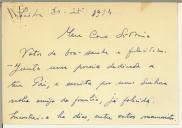 1974
Meu Caro António
Votos de boa saúde e felicidades.
— Junto uma poesia dedicada a
teu Pai, e escrita por uma Senhora
velha amiga da família, já falecida.
Encontrei-a há dias, entre outros manuscritos,